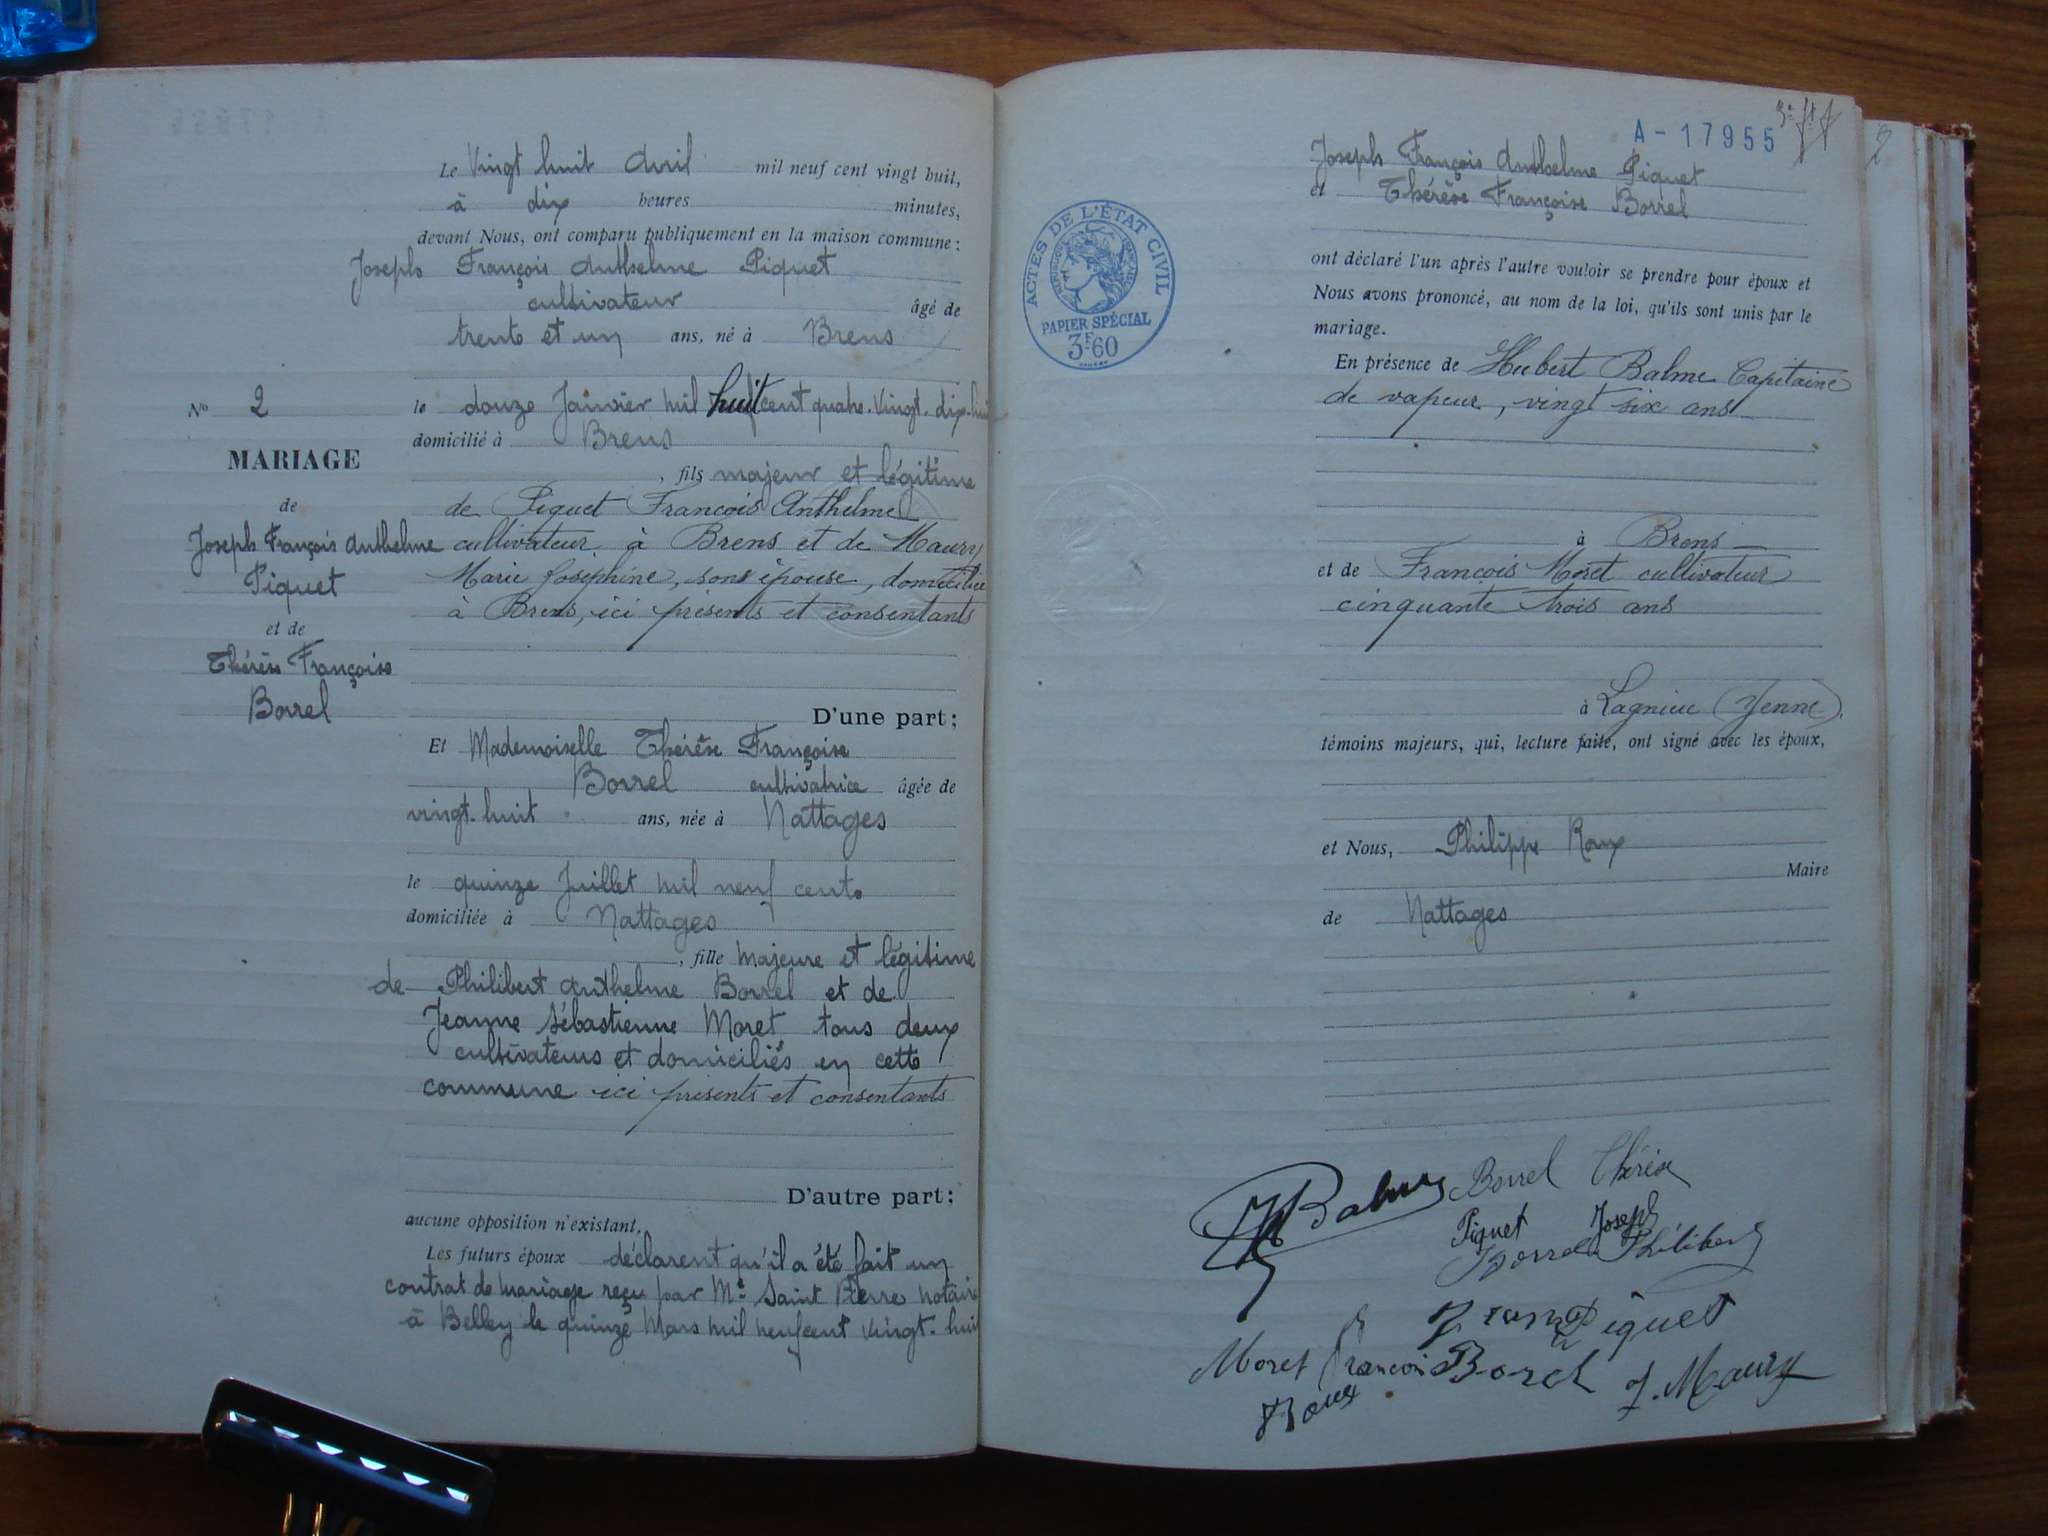 Le Vingt huit Avril mil neuf cent vingt huit,
à dix heures minutes,
devant Nous, ont comparu publiquement en la maison commune :
Joseph François Anthelme Piquet
cultivateur âgé de
trente et un ans, né à Brens
le douze Janvier mil huit cent quatre-Vingt-dix-huit
domicilié à Brens
, fils majeur et légitime
de Piquet Francois Anthelme
cultivateur à Brens et de Maury
Marie Joséphine, son épouse, domiciliée
à Brens, ici présents et consentants
D'une part ;
Et Mademoiselle Thérèse Françoise
Borrel cultivatrice âgée de
vingt-huit ans, née à Nattages
le quinze Juillet mil neuf cent.
domiciliée à Nattages
, fille majeure et légitime
de Philibert Anthelme Borrel et de
Jeanne Sébastienne Moret tous deux
cultivateurs et domiciliés en cette
commune ici présents et consentants
D'autre part ;
aucune opposition n'existant,
Les futurs époux déclarent qu'il a été fait un
contrat de mariage reçu par Me Saint Pierre notaire
à Belley le quinze Mars mil neuf cent vingt-huit
No 2
MARIAGE
de
Joseph François Anthelme
Piquet
et de
Thérèse Françoise
Borrel
A - 17955
2
Joseph François Anthelme Piquet
et Thérèse Françoise Borrel
ACTES DE L'ÉTAT CIVIL
PAPIER SPÉCIAL
3F60
ont déclaré l'un après l'autre vouloir se prendre pour époux et
Nous avons prononcé, au nom de la loi, qu'ils sont unis par le
mariage.
En présence de Hubert Balme Capitaine
de vapeur, vingt six ans
à Brens
et de François Moret cultivateur
cinquante trois ans
à Lagnieu (Yenne).
témoins majeurs, qui, lecture faite, ont signé avec les époux,
et Nous, Philippe Roux
Maire
de Nattages
Balme Borrel Thérèse
Piquet Joseph
Borrel Philibert
Piquet
Moret Francois Borel J. Maury
Roux